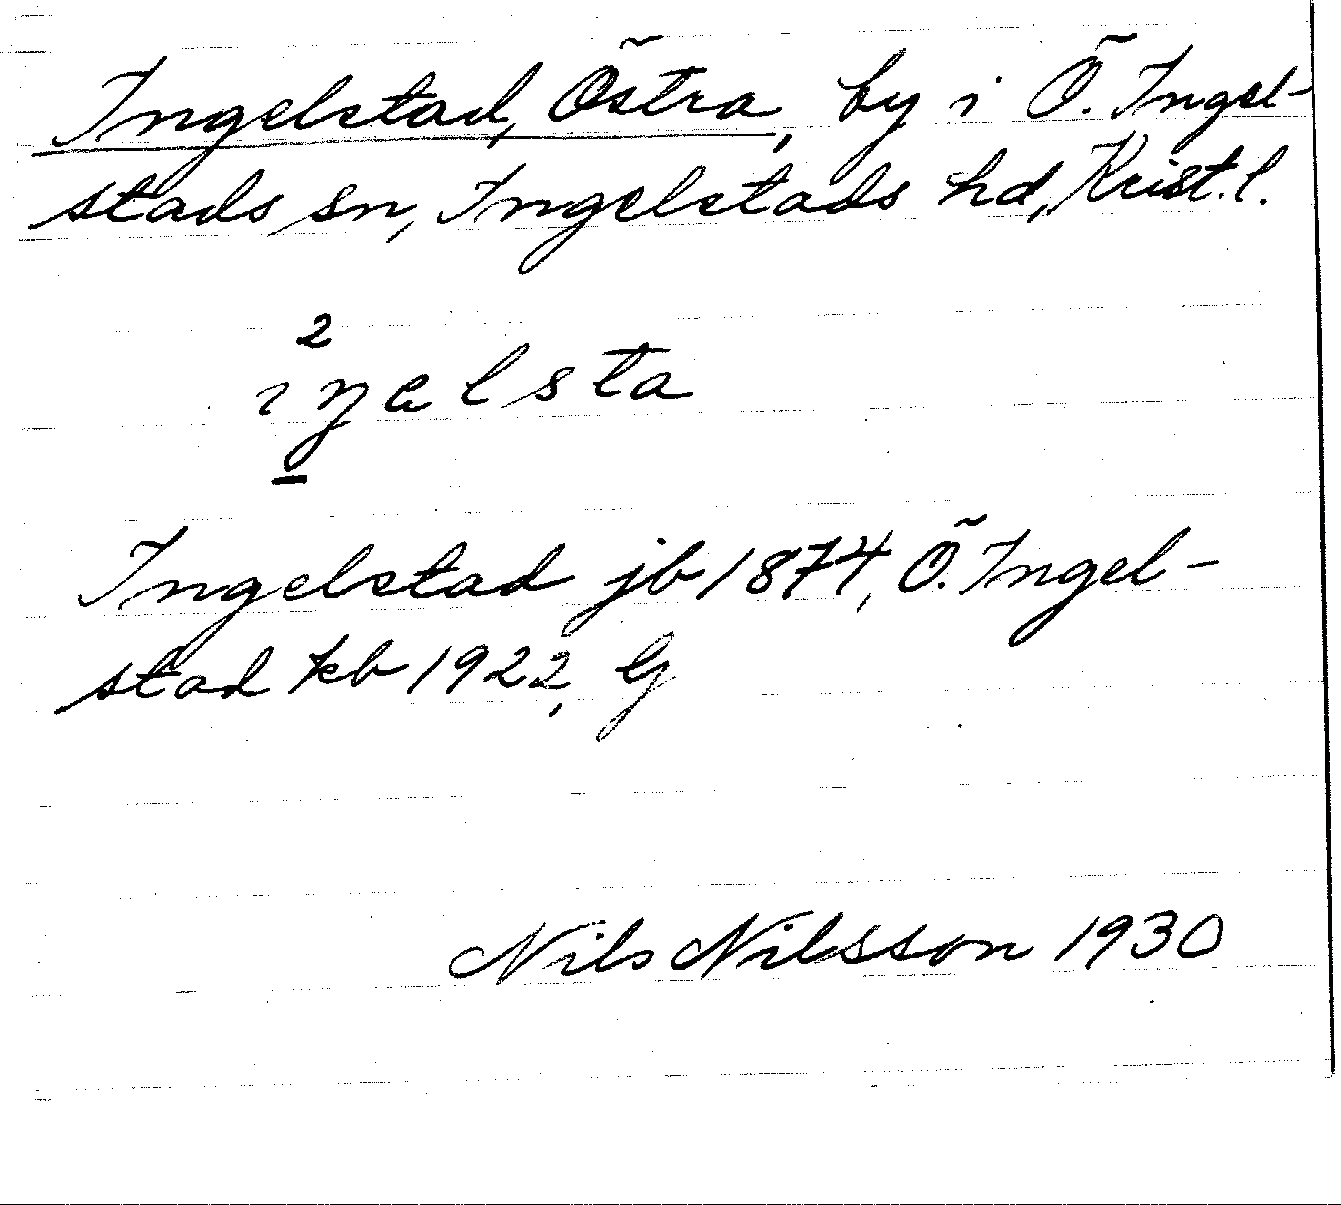 Ingelstad, Östra, by i Ö. Ingel-
stads sn, Ingelstads hd, Krist. l.
2
iŋəlsta
Ingelstad jb 1874, Ö. Ingel-
stad kb 1922, G
Nils Nilsson 1930